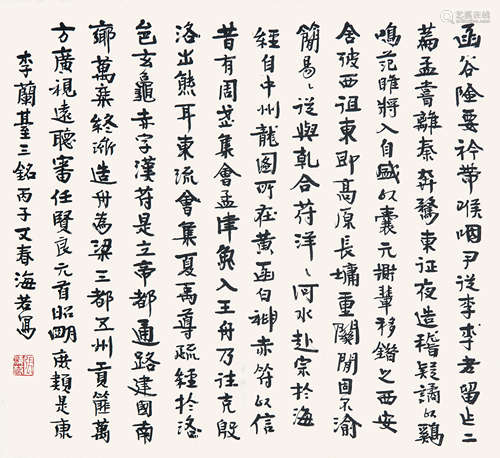 函谷險要衿帶喉咽尹從李李老留作二
篇孟嘗離秦奔騖東征夜造稽疑譎以雞
鳴范睢將入自盛以囊元移錯之西安
舍彼西阻東即高原長墉重關閉固不渝
簡易易從與乾合符洋洋河水赴宗於海
經自中州龍圖所在黃函白神赤符以信
昔有周武集會孟津魚入王舟乃往克殷
洛出熊耳東流會集夏禹導疏經於洛
邑玄龜赤字漢符是立帝都通路建國南
鄉萬乘終濟造舟為梁三都五州貢篚萬
方廣視遠聽審任賢良元首昭明庶類是康
李蘭臺三銘丙子又春海若寫